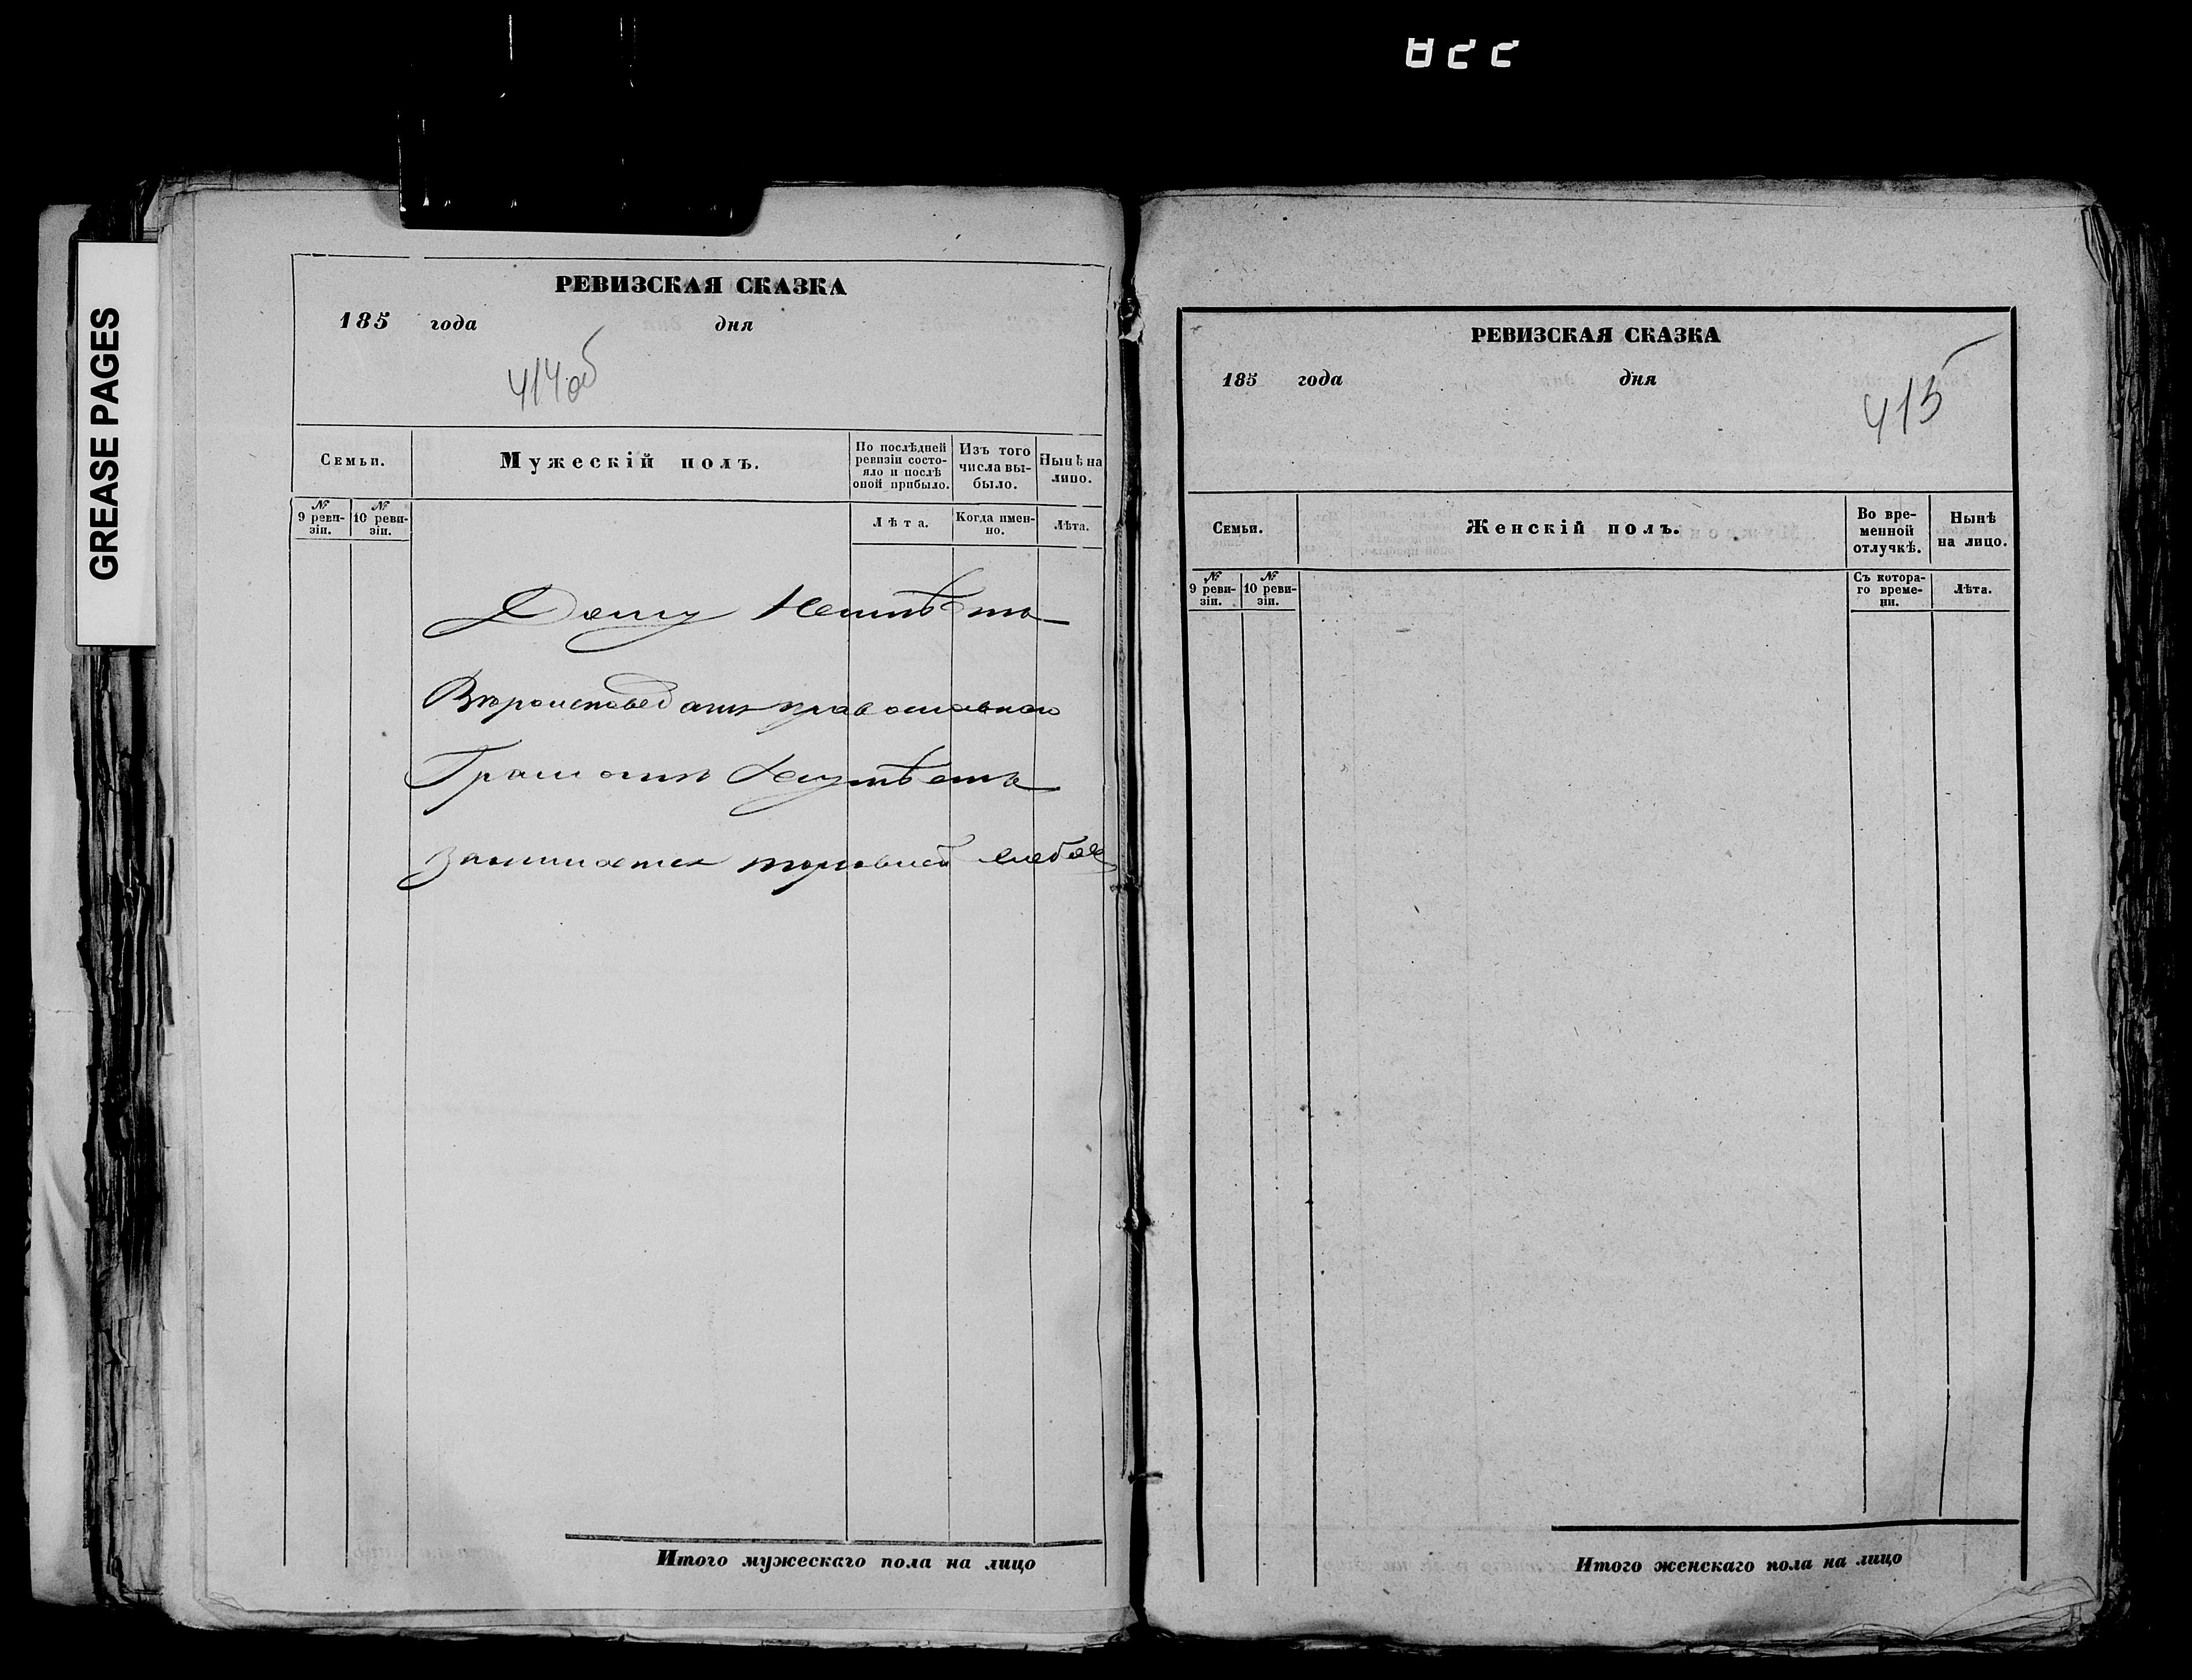 822
GREASE PAGES
РЕВИЗСКАЯ СКАЗКА
185 года дня
414 об
Семьи.
Мужескій полъ.
По послѣдней ревизіи состо-
яло и послѣ оной прибыло.
Изъ того числа вы-
было.
Нынѣ на лицо.
№ 9 реви-
зіи.
№ 10 реви-
зіи.
Лѣта.
Когда имен-
но.
Лѣта.
Дому Неимѣетъ
Вѣроисповеданія православнаго
Грамотѣ Неумѣетъ
Занимается торговлей
Итого мужескаго пола на лицо
РЕВИЗСКАЯ СКАЗКА
185 года дня
415
Семьи.
Женскій полъ.
Во вре-
менной
отлучкѣ.
Нынѣ
на лицо.
№ 9 реви-
зіи.
№ 10 реви-
зіи.
Съ котора-
го време-
ни.
Лѣта.
Итого женскаго пола на лицо